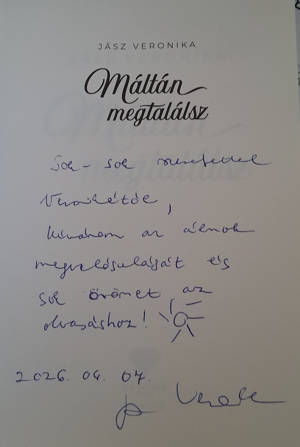 JÁSZ VERONIKA
Máltán
megtalálsz
Sok-sok szeretettel
Veronikától,
kívánom az álmok
megvalósulását és
sok örömet az
olvasáshoz!
2026. 04. 07.